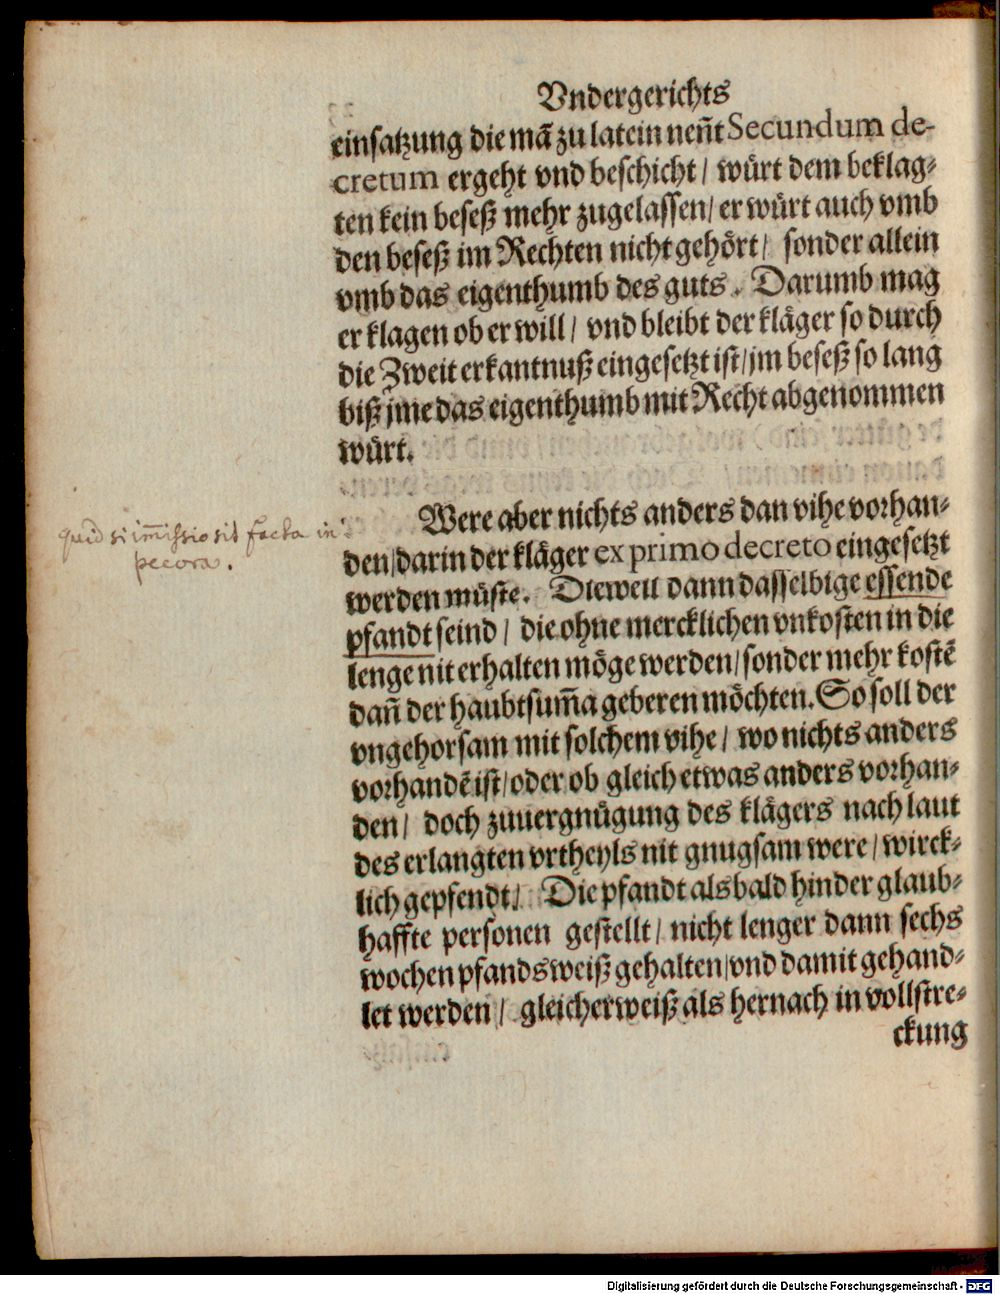 Vndergerichts
einsatzung die mā zu latein neñt Secundum de-
cretum ergeht vnd beschicht / würt dem beklag-
ten kein beseß mehr zugelassen / er würt auch vmb
den beseß im Rechten nicht gehört / sonder allein
vmb das eigenthumb des guts. Darumb mag
er klagen ob er will / vnd bleibt der kläger so durch
die Zweit erkantnuß eingesetzt ist / jm beseß so lang
biß jme das eigenthumb mit Recht abgenommen
würt.
Were aber nichts anders dan vihe vorhan-
den / darin der kläger ex primo decreto eingesetzt
werden müste. Dieweil dann dasselbige essende
pfandt seind / die ohne mercklichen vnkosten in die
lenge nit erhalten möge werden / sonder mehr kostē
dañ der haubtsum̄a geberen möchten. So soll der
vngehorsam mit solchem vihe / wo nichts anders
vorhandē ist / oder ob gleich etwas anders vorhan-
den / doch zuuergnügung des klägers nach laut
des erlangten vrtheyls nit gnugsam were / wirck-
lich gepfendt / Die pfandt als bald hinder glaub-
haffte personen gestellt / nicht lenger dann sechs
wochen pfandsweiß gehalten / vnd damit gehand-
let werden / gleicherweiß als hernach in vollstre-
ckung
quid si im̄issio sit facta in
pecora.
Digitalisierung gefördert durch die Deutsche Forschungsgemeinschaft - DFG